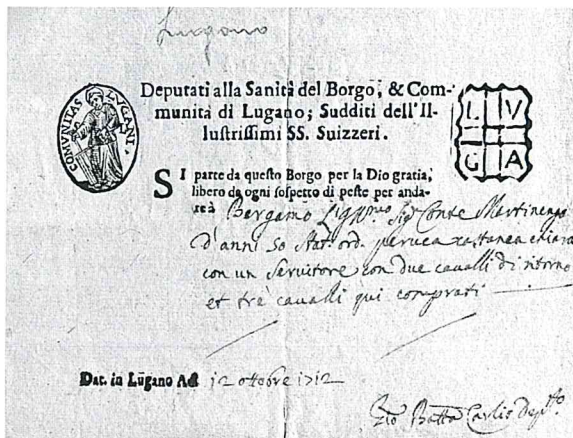 Lugano
Deputati alla Sanità del Borgo, & Com-
munità di Lugano; Sudditi dell'Il-
lustrissimi SS. Suizzeri.
COMVNITAS LVGANI.
L V
G A
SI parte da questo Borgo per la Dio gratia,
libero da ogni sospetto di peste per anda-
re à Bergamo Sig.r Conte Martinengo
d'anni 50 Stat. ord. peruca castanea chiara
con un Seruitore con due caualli di ritorno
et tre caualli qui comprati
Dat. in Lugano Adì 12 ottobre 1712
Gio Batta Carlio Dep.to